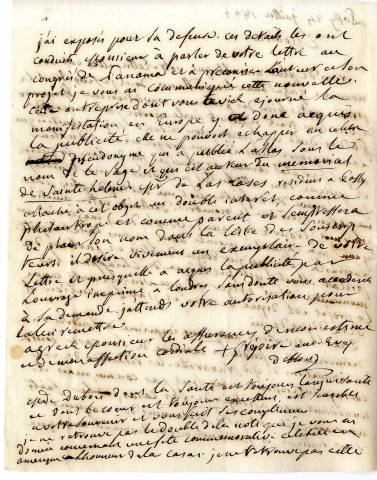 j'ai exposés pour la defense. ces details les ont
conduit, monsieur à parler de votre lettre au
congrès de Panama et à préconiser l'auteur et son
projet. je vous ai communiqué cette nouvelle.
cette entreprise dont vous aviez ajourné la
manifestation en Europe y donc acquis
la publicité. elle ne pouvoit echapper au celebre
pseudonyme qui a publié l'atlas sous le
nom de le Sage et qui est auteur du memorial
de Sainte helene. Mr de Las Cases résident à Passy
attache à cet objet un double interet, comme
philantrope et comme parent et s'empressera
de placer son nom dans la liste des
il désire vivement un exemplaire de votre
Lettre et puisqu'elle a acquis la publicité par
l'ouvrage imprimé à londres sans doute vous accederez
à sa demande j'attends votre autorisation pour
la lui remettre
agréez monsieur les assurances de mon estime
et de mon affection cordiale + Grégoire anc Evêq
de blois
Dubois dont la Santé est toujours languissante
et dont le coeur est toujours excellent, est sensible
a votre souvenir et vous fait ses complimens
je ne retrouve pas le double de la note que je vous ai
donnée concernant une fête commemorative celebrée en
amerique en l'honneur de las casas. je ne retrouve pas cette